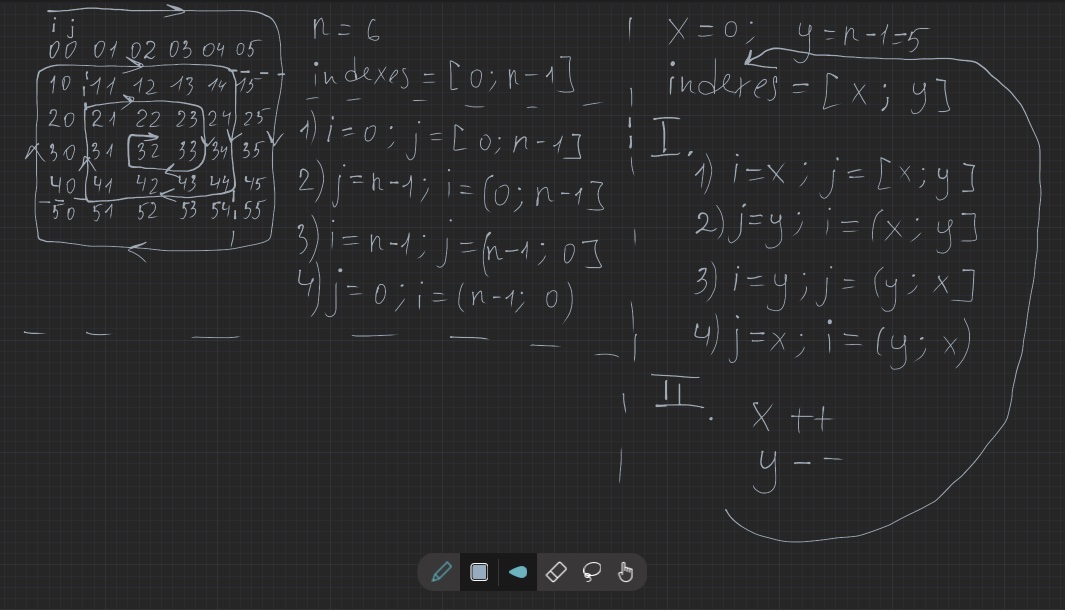 i j
00 01 02 03 04 05
10 11 12 13 14 15
20 21 22 23 24 25
30 31 32 33 34 35
40 41 42 43 44 45
50 51 52 53 54 55
n = 6
indexes = [0; n-1]
1) i = 0 ; j = [0; n-1]
2) j = n-1 ; i = (0; n-1]
3) i = n-1 ; j = (n-1; 0]
4) j = 0 ; i = (n-1; 0)
x = 0 ; y = n-1 = 5
indexes = [x ; y]
I.
1) i = x ; j = [x; y]
2) j = y ; i = (x ; y]
3) i = y ; j = (y ; x]
4) j = x ; i = (y ; x)
II.
x ++
y --